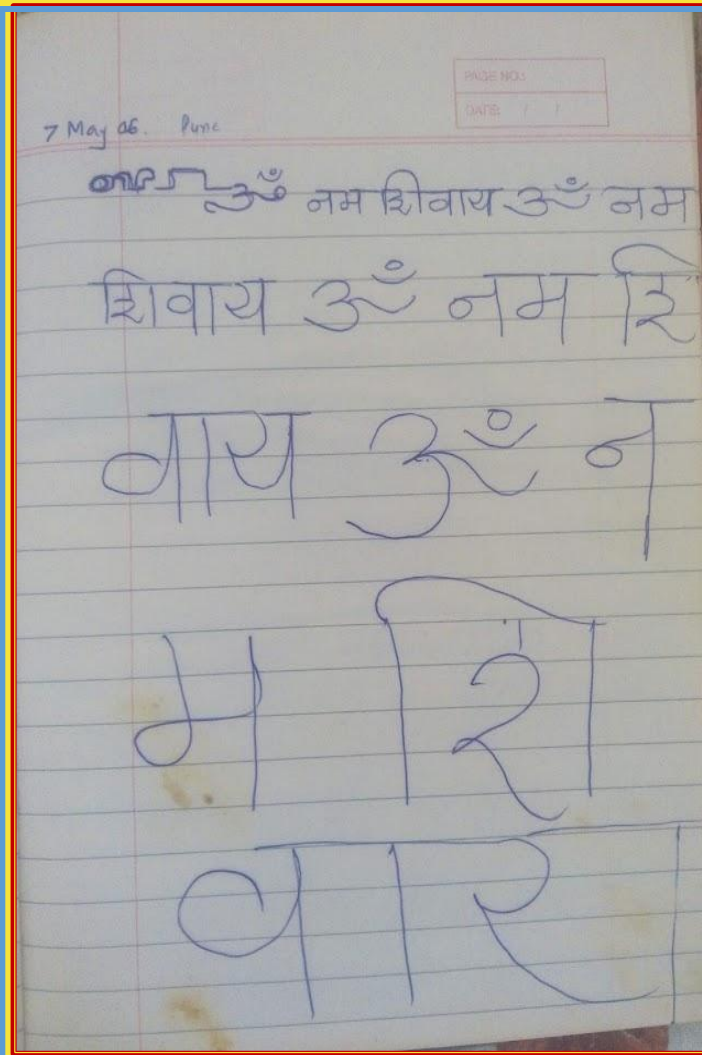 PAGE NO.:
DATE: / /
7 May 06. Pune
ॐ नम शिवाय ॐ नम
शिवाय ॐ नम शि
वाय ॐ न
म शि
वाय